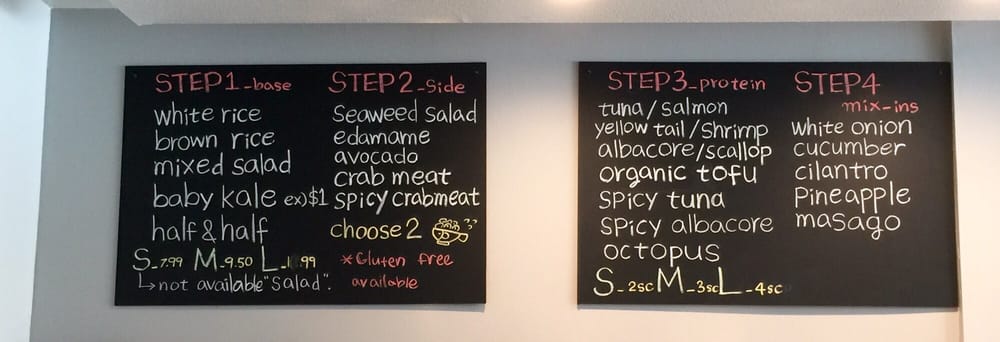 STEP1-base
white rice
brown rice
mixed salad
baby kale ex)$1
half & half
S-7.99 M-9.50 L
not available "salad".
STEP2-Side
Seaweed Salad
edamame
avocado
crab meat
spicy crabmeat
choose 2
*Gluten free
available
STEP3-protein
tuna/salmon
yellow tail/shrimp
albacore/scallop
organic tofu
spicy tuna
spicy albacore
octopus
S-2sc M-3sc L-4sc
STEP4
mix-ins
white onion
cucumber
cilantro
Pineapple
masago